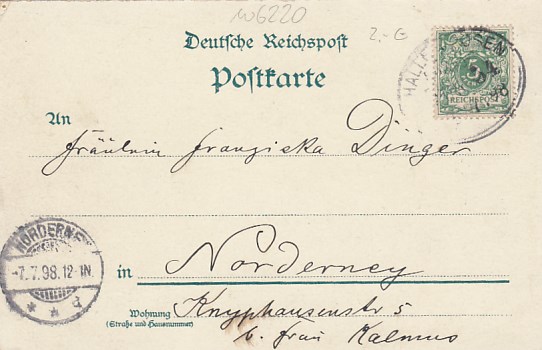 W6220
2.-G
Deutsche Reichspost
Postkarte
5
REICHSPOST
An
Fräulein Franziska Dinger
NORDERNEY
-7.7.98.12-1N.
* * d
in Norderney
Wohnung
(Straße und Hausnummer)
Knyphausenstr 5
b. Frau Kalmus